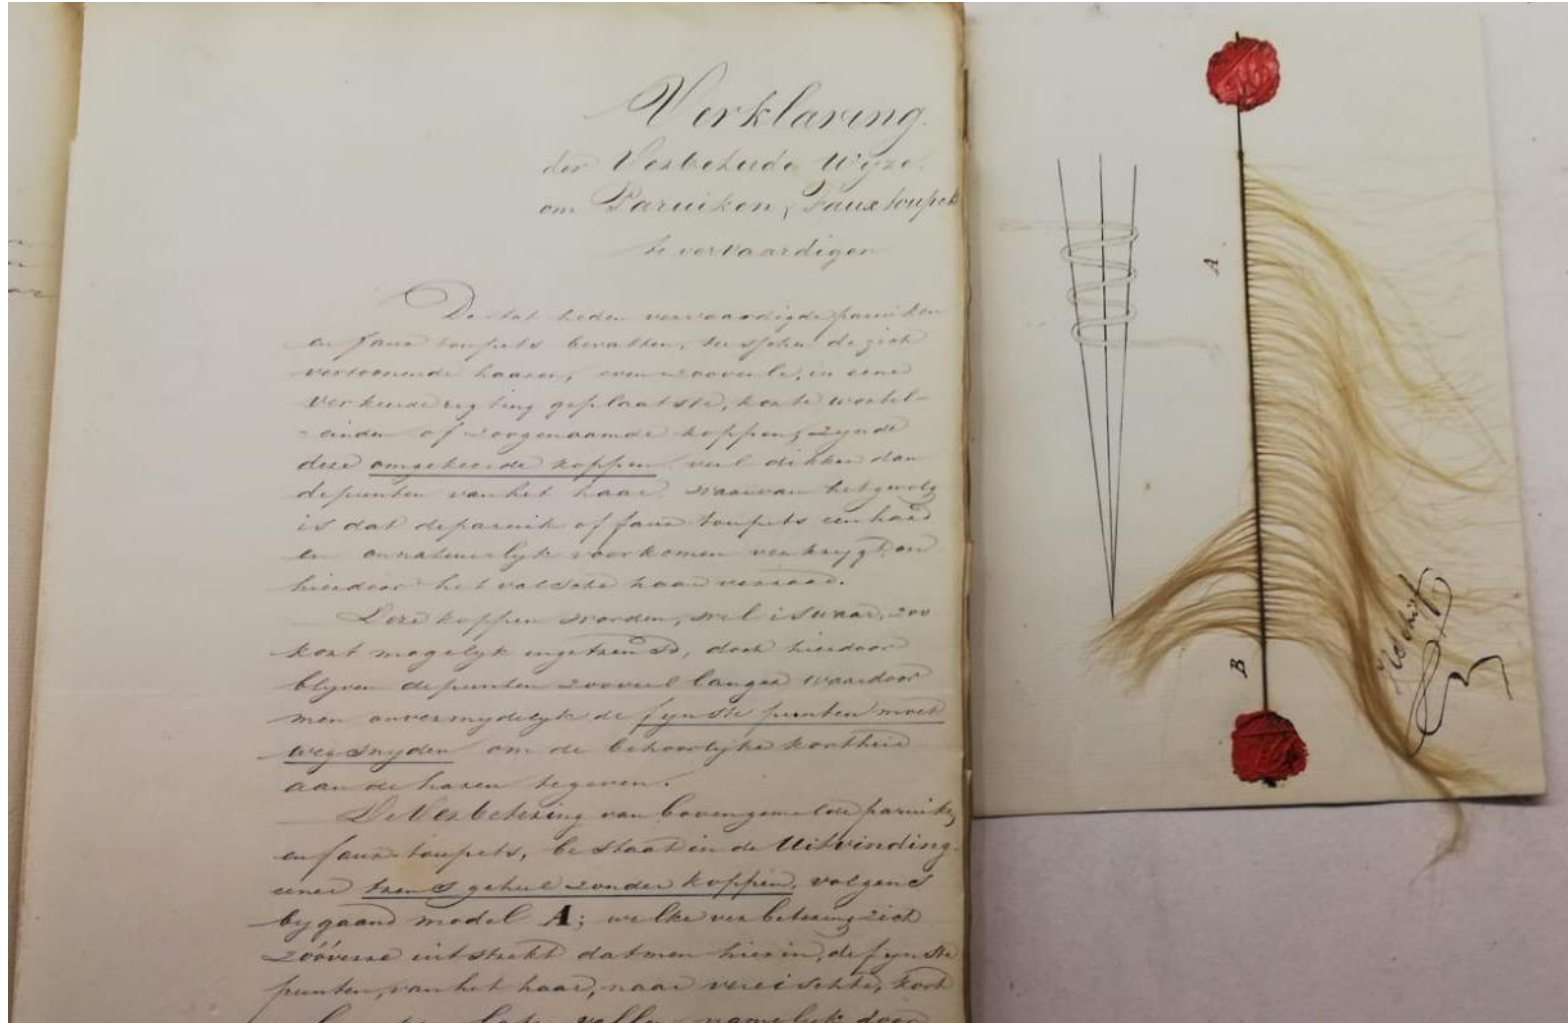 Verklaring
der Verbeterde Wyze
om Paruiken, Faux toupets
te vervaardigen
De tot heden vervaardigde paruiken
en faux toupets bevatten, tusschen de zich
vertoonende haaren, even zooveele, in eene
verkeerde rigting geplaatste, korte wortel-
-einden of zoogenaamde koppen; zynde
deze omgekeerde koppen veel dikker dan
de punten van het haar, waarvan het gevolg
is dat de paruik of faux toupets een hard
en onnatuurlyk voorkomen verkrygt, en
hierdoor het valsche haar verraad.
Deze koppen worden, wel is waar, zoo
kort mogelyk ingetrensd, doch hierdoor
blyven de punten zooveel langer waardoor
men onvermydelyk de fynste punten moet
weg snyden om de behoorlyke kortheid
aan de haren te geven.
De Verbetering van bovengemelde paruiken
en faux toupets, bestaat in de Uitvinding
eener trens geheel zonder koppen, volgens
bygaand model A; welke verbetering zich
zoóverre uitstrekt dat men hierin, de fynste
punten, van het haar, naar vereischte, kort
vallen namelyk door
A
B